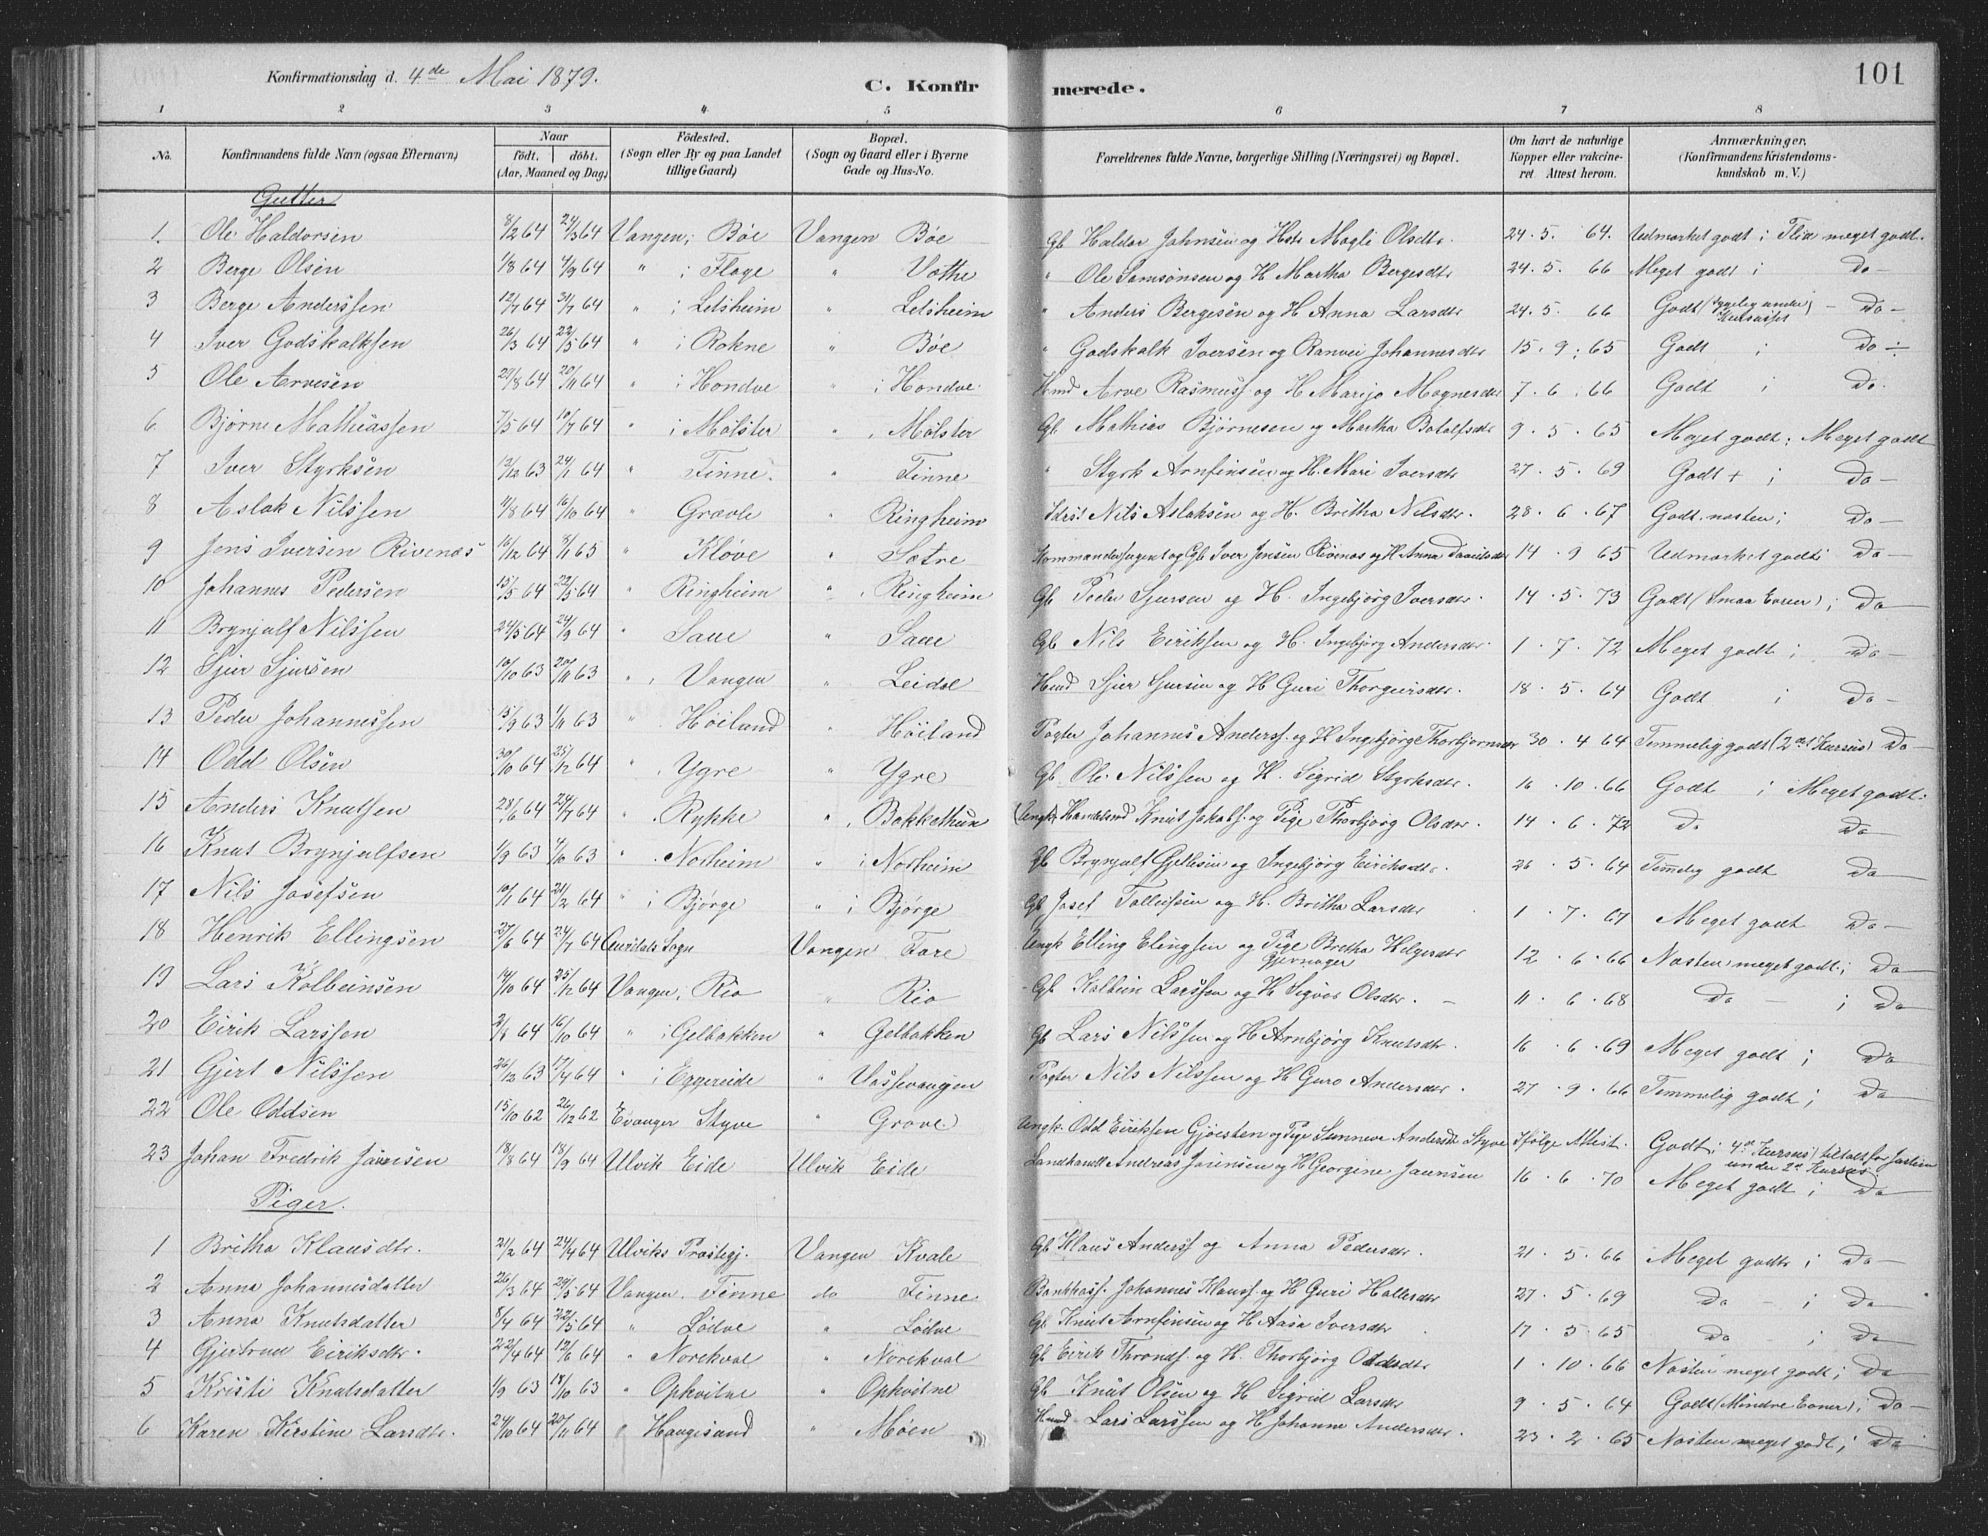 Konfirmationsdag d. 4de Mai 1879.
C. Konfir merede.
101
1 2 3 4. 5 6 7 8
No. Konfirmandens fulde Navn (ogsaa Efternavn) Naar födt. döbt. (Aar, Maaned og Dag) Födested. (Sogn eller By og paa Landet tillige Gaard) Bopæl. (Sogn og Gaard eller i Byerne Gade og Hus-No. Forældrenes fulde Navne, borgerlige Stilling (Næringsvei) og Bopæl. Om havt de naturlige Kopper eller vakcineret. Attest herom. Anmærkninger. (Konfirmandens Kristendomskundskab m. V.)
Gutter
1. Ole Haldorsen 8/2 64 24/3 64 Vangen; Böe Vangen Böe Gb Haldor Johnsen og Hst Magli Olsdtr. 24. 5. 64. Udmærket godt i Flid meget godt.
2 Berge Olsen 1/8 64 4/9 64 " i Flage " Vethe " Ole Samsonsen og H Martha Bergesdtr 24. 5. 66 Meget godt i Do
3 Berge Anderssen 12/7 64 31/7 64 " i Lidsheim " Lidsheim " Anders Bergesen og H Anna Larsdtr 24. 5. 66 Godt (sygelig under Kursuset) - Do -
4 Iver Godskalksen 26/3 64 22/5 64 " i Rokne " Böe " Godskalk Iversen og Ranvei Johannesdtr 15. 9. 65 Godt i Do
5 Ole Arvesen 27/8 64 20/11 64 " i Hondve " i Hondve. Hmd Arve Rasmuss. og H Marijo Magnesdtr 7. 6. 66 Godt i Do.
6 Björne Mathiassen 7/5 64 10/7 64 " i Mölster " Mölster Gb Mathias Björnesen og Martha Botolfsdtr 9. 5. 65 Meget godt; Meget godt
7 Iver Styrksen 13/12 63 24/1 64 " Finne. " Finne " Styrk Arnfinsen og H. Mari Iversdtr 27. 5. 69 Godt + i Do -
8 Aslak Nilssen 11/8 64 16/10 64 " Grævle " Ringheim Nils Aslaksen og H. Britha Nilsdtr. 28. 6. 67 Godt. næsten; Do -
9 Jens Iversen Rivenæs 16/12 64 8/1 65 " Klöve " Sætre Iver Jensen Rivenæs og H Anna 14. 9 65 Udmærket godt i Do -
10 Johannes Pedersen 15/5 64 22/5 64 " Ringheim " Ringheim Gb Peder Sjursen og H. Ingebjörg Iversdtr. 14. 5. 73 Godt (Smaa Evner); Do
11 Brynjulf Nilssen 24/5 64 24/9 64 " Saue " Saue Gb Nils Eiriksen og H. Ingebjörg Andersdtr. 1. 7. 72 Meget godt i Do -
12 Sjur Sjursen 10/10 63 20/11 63 " Vangen " Leidal Hmd Sjur Sjursen og H Guri Thorgiersdtr. 18. 5. 64 Godt i Do -
13 Peder Johannessen 15/9 63 1/11 63 " Höiland " Höiland Pagter Johannes Anderss. og H Ingebjörg Thorbjornsdtr 30. 4 64 Temmelig godt (2det Kursus) Do -
14 Odd Olsen 30/10 64 25/12 64 " Ygre " Ygre Gb. Ole Nilssen og H. Sigrid Styrksdtr. 16. 10. 66 Godt i Meget godt.
15 Anders Knutsen 28/6 64 24/7 64 " Rykke " Bakkethun Knut Jakobs. og Pige Thorbjörg Olsdtr. 14. 6. 72 Do Do -
16 Knut Brynjulfsen 1/9 63 4/10 63 " Norheim " i Norheim Gb Brynjulf Gjellesen og Ingebjörg Eiriksdtr. 26. 5. 64 Temmelig godt Do -
17 Nils Josefsen 10/1 64 21/2 64 " i Björge " i Björge Gb Josef Tolleifsen og H. Britha Larsdtr 1. 7. 67 Meget godt Do -
18 Henrik Ellingsen 27/6 64 24/7 64 Sogn Vangen Fare Ungk Elling Elingsen og Pige Britha Helgesdtr Gjernager 12. 6. 66 Næsten meget godt; Do
19 Lars Kolbeinsen 14/10 64 25/12 64 Vangen, Rio " Rio Gb Kolbein Larssen og H Sigvor Olsdtr. - 11. 6. 68 Do - i Do
20 Eirik Larssen 2/8 64 16/10 64 " i Gelbakken " Gelbakken Gb Lars Nilssen og H Arnbjörg Knutsdtr. 16. 6. 69 Meget godt i Do
21 Gjert Nilssen 26/12 63 17/4 64 " i Eggereide " Vossevangen Pagter Nils Nilssen og H Guro Andersdtr. 27. 9. 66 Temmelig godt; Do
22 Ole Oddsen 15/10 62 26/12 62 Evanger Styve " Grove. Ungk. Odd Eiriksen Gjösten og Pige Sunneve Andersdtr Styve Ifölge Attest. Godt; 4de Kursus, under 2de Kursus
23 Johan Fredrik Jaunsen 18/8 64 18/9 64 Ulvik Eide Ulvik Eide Landhandl Andreas Jaunsen og H Georgine Jaunsen 16. 6. 70 Meget godt i Do
Piger.
1 Britha Klausdtr. 21/2 64 24/4 64 Ulviks Præstegj. Vangen Kvale Gb Klaus Anderss og Anna Pedersdtr. 21. 5. 66 Meget godt i Do -
2 Anna Johannesdatter 26/3 64 29/5 64 Vangen. Finne do Finne. Johannes Klauss. og H Guri Hallesdtr 27. 5. 69 Do - i Do
3 Anna Knutsdatter 8/4 64 22/5 64 " Lödve " Lödve Gb Knut Arnfinsen og H Aasa Iversdtr 17. 5. 65 Do - i Do
4 Gjertrud Eiriksdtr. 22/4 64 12/6 64 " Norekval " Norekval Gb Eirik Thronds. og H. Thorbjörg Oddsdtr 1. 10. 66 Næsten meget godt; Do
5 Kristi Knutsdatter 1/9 63 18/10 63 " Ophvitne " Ophvitne Gb Knut Olsen og H Sigrid Larsdtr 9. 5. 64 Godt (Mindre Evner); Do -
6 Karen Kirstine Larsdtr. 24/10 64 20/11 64 " Haugesund " Möen Hmd Lars Larssen og H Johanne Andersdtr. 23. 2. 65 Næsten meget godt; Do